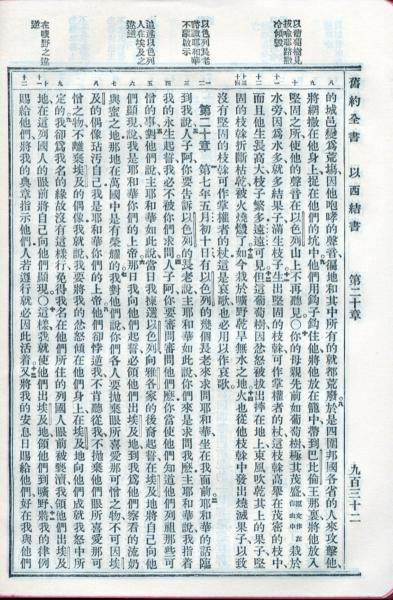 舊約全書　以西結書　第二十章　九百三十二
以葡萄樹見
拔喻耶路撒
冷傾毀
以色列長老
來諮諏耶和華
不蒙啟示
追述以色列
人在埃及之
違逆
在曠野之違
逆
的城邑變爲荒塲因他咆哮的聲音徧地和其中所有的就都荒廢八於是四圍邦國各省的人來攻擊他
將網撒在他身上捉在他們的坑中九他們用鈎子鈎住他將他放在籠中帶到巴比倫王那裏將他放入
堅固之所使他的聲音在以色列山上不再聽見○十你的母親先前如葡萄樹極其茂盛原文作在你血中栽於
水旁因爲水多就多結果子滿生枝子十一生出堅固的枝幹可作掌權者的杖這枝幹高舉在茂密的枝中
而且他生長高大枝子繁多遠遠可見十二但這葡萄樹因忿怒被拔出摔在地上東風吹乾其上的果子堅
固的枝幹折斷枯乾被火燒燬了十三如今栽於曠野乾旱無水之地十四火也從他枝幹中發出燒滅果子以致
沒有堅固的枝幹可作掌權者的杖這是哀歌也必用以作哀歌
第二十章　第七年五月初十日有以色列的幾個長老來求問耶和華坐在我面前二耶和華的話臨
到我說三人子阿你要告訴以色列的長老說主耶和華如此說你們來是求問我麼主耶和華說我指着
我的永生起誓我必不被你們求問四人子阿你要審問審問他們麼你當使他們知道他們列祖那些可
憎的事五對他們說主耶和華如此說當日我揀選以色列向雅各家的後裔起誓在埃及地將自己向他
們顯現說我是耶和華你們的上帝六那日我向他們起誓必領他們出埃及地到我爲他們察看的流奶
與蜜之地那地在萬國中是有榮耀的七我對他們說你們各人要拋棄眼所喜愛那可憎之物不可因埃
及的偶像玷污自己我是耶和華你們的上帝八他們卻悖逆我不肯聽從我不拋棄他們眼所喜愛那可
憎之物不離棄埃及的偶像我就說我要將我的忿怒傾在他們身上在埃及地向他們成就我怒中所
定的九我卻爲我名的緣故沒有這樣行免得我名在他們所住的列國人眼前被褻瀆我領他們出埃及
地在這列國人的眼前將自己向他們顯現○十這樣我就使他們出埃及地領他們到曠野十一將我的律例
賜給他們將我的典章指示他們人若遵行就必因此活着十二又將我的安息日賜給他們好在我與他們